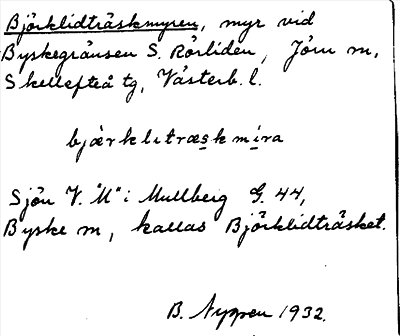 Björklidträskmyren, myr vid
Byskegränsen S. Rörliden, Jörn m,
Skellefteå tg, Västerb. l.
bjærklitræskmira
Sjön V. "M" i Mullberg G. 44,
Byske m, kallas Björklidträsket.
B. Nygren 1932.